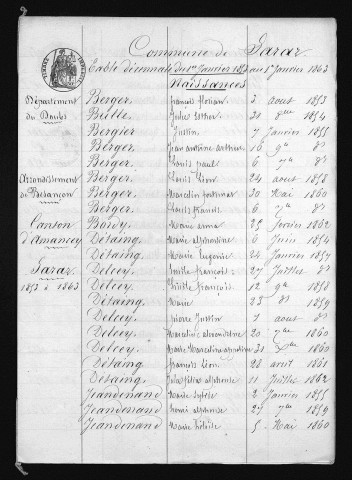 Commune de Saraz
Table décennale du 1er Janvier 1853 au 1er Janvier 1863
Naissances
Département
du Doubs
Arrondissement
de Besançon
Canton
d'Amancey
Saraz
1853 à 1863
Berger françois florian 3 aout 1853
Brille Julie Esther 31 8bre 1854
Bergier Justin 7 Janvier 1855
Berger, Jean antoine 16 9e dt
Berger, Louis paul 6 dt
Berger, Louis Léon 24 aout 1858
Berger, Marcelin 30 Mai 1860
Berger, Louis francis 6 dt
Bordy Marie anna 25 février 1862
Détaing, Marie alphonsine 6 Juin 1854
Détaing, Marie Eugénie 24 Janvier 1857
Delcey, Emille françois 27 Juillet dt
Delcey, françois 12 9e 1858
Détaing, Marie 23 dt 1859
Delcey pierre Justin 1 aout dt
Delcey, Marceline alexandrine 20 1860
Delcey, Marie Marceline 31 Xbre 1860
Détaing françois Léon 28 avril 1861
Détaing, Jules alphonse 11 Juillet 1862
Jeandenand Marie 2 Janvier 1855
Jeandenand henri alphonse 27 1859
Jeandenand Marie 5 Mai 1860